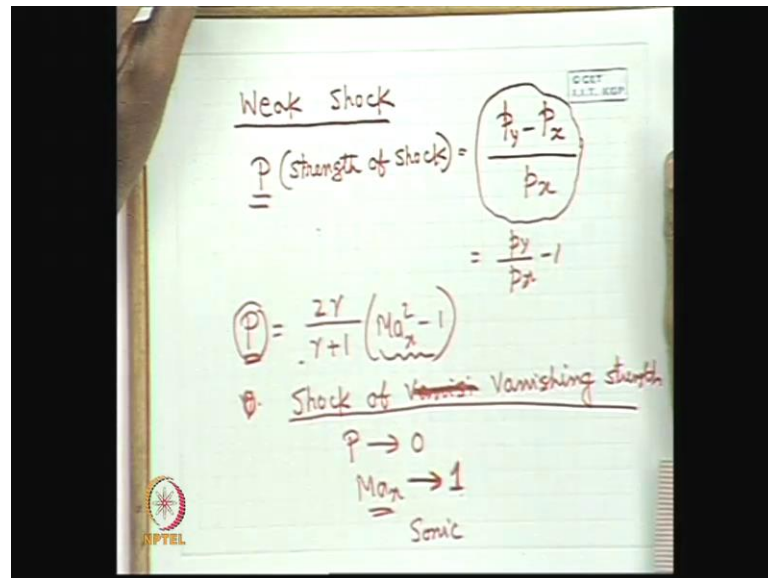 Weak Shock
© CET
I.I.T. KGP
P (strength of shock) = (p_y - p_x) / p_x
= p_y / p_x - 1
P = 2γ / (γ+1) (Ma_x² - 1)
Shock of Vanishing strength
P → 0
Ma_x → 1
Sonic
NPTEL